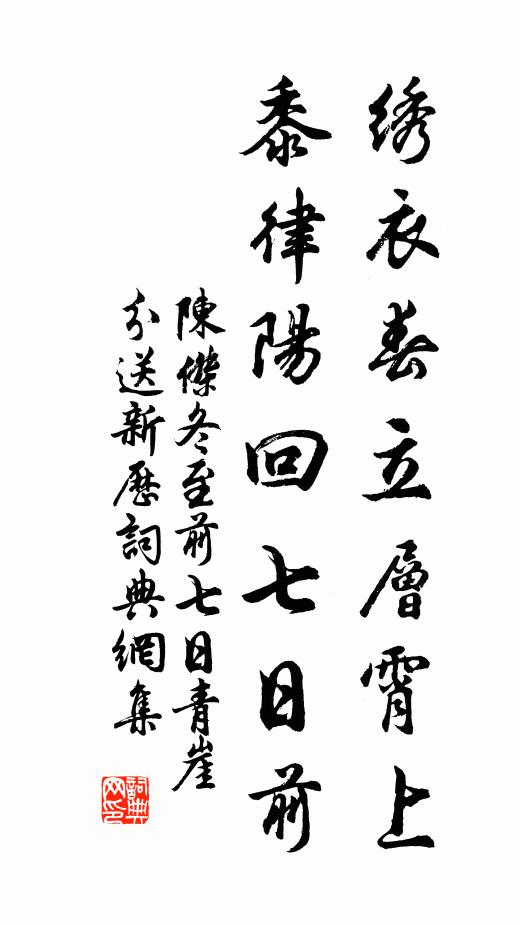 绣衣春立層霄上
黍律陽回七日前
陳傑冬至前七日青崖
分送新歷詞典網集
詞典网印